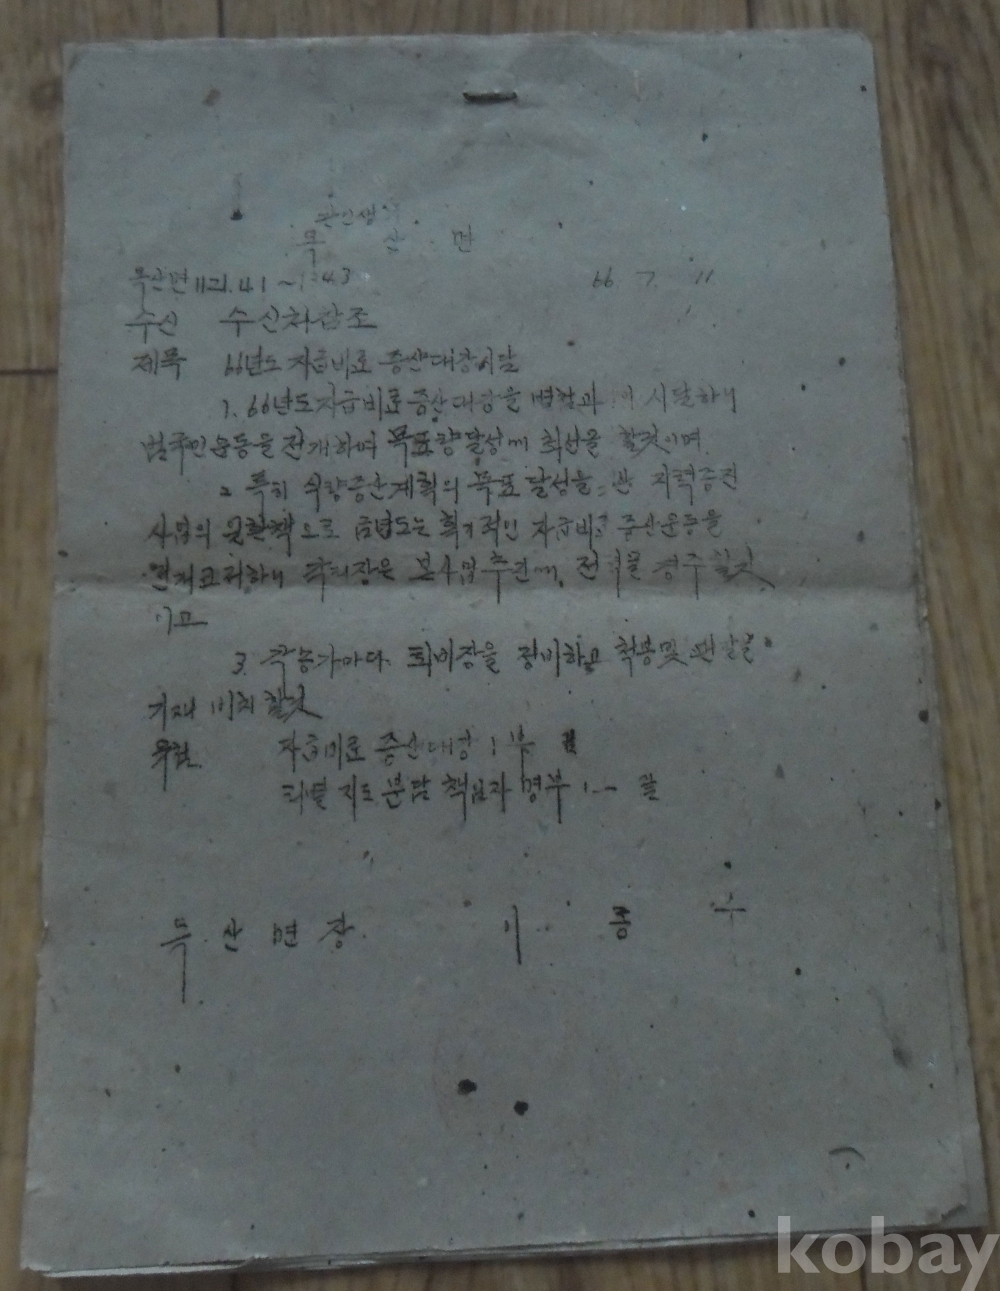 관인생
목 산 면
목산면 1121.41 ~ 1 43 66 7. 11
수신 수신처참조
제목 66년도 자급비료 증산대장이달
1. 66년도 자급비료 증산대장을 시달하니
범국민운동을 전개하며 목표량달성에 최선을 할것이며
2 특히 식량증산계획의 목표달성을 지력증진
사업의 으로 금년도는 획기적인 자급비 증산운동을
전개코저하니 각리장은 본사업추진에 전력을 경주할것
이고
3. 각농가마다 퇴비장을 정비하고 착봉및 팻말을
기재 비치할것
유첨 자급비료 증산대장 1부
리별 지도 분담 책임자 명부 1 끝
득산면장 이 종 수
kobay